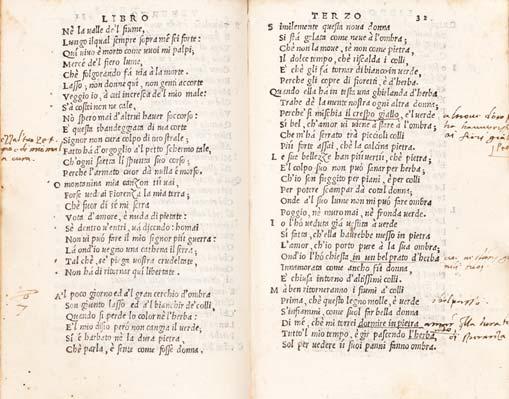 LIBRO
Nè la ualle del fiume,
Lungo ilqual sempre sopra me sei forte:
Qui uiuo è morto come uuoi mi palpi,
Mercè del fiero lume,
Chè folgorando fa uia à la morte.
Lasso, non donne qui, non genti accorte
Veggio io, à cui incresca del mio male:
S'à costei non ne cale,
Nò spero mai d'altrui hauer soccorso:
E questa sbandeggiata di tua corte
Signor non cura colpo di tuo strale:
Fatto ha d'orgoglio al petto schermo tale,
Ch'ogni saetta li spunta suo corso;
Perche l'armato cuor da nulla è morso.
O montanina mia canzon tu uai,
Forse uedrai Fiorenza la mia terra;
Chè fuor di se mi serra
Vota d'amore, è nuda di pietate:
Sè dentro u'entri, uà dicendo: homai
Non ui può fare il mio signor più guerra:
Là ond'io uegno una catena il serra;
Tal chè, se piega uostra crudeltate,
Non ha di ritornar qui libertate.
Al poco giorno ed al gran cerchio d'ombra
Son giunto lasso ed al bianchir de colli,
Quando si perde lo color nè l'herba:
E'l mio disio però non cangia il uerde,
Si è barbato nè la dura pietra,
Chè parla, è sente come fosse donna.
TERZO
32
Similemente questa noua donna
Si stà gelata come neue à l'ombra;
Chè non la moue, se non come pietra,
Il dolce tempo, chè riscalda i colli
E' chè gli fa tornar di bianco in uerde,
Perche gli copre di fioretti, è d'herba.
Quando ella ha in testa una ghirlanda d'herba
Trahe dè la mente nostra ogni altra donna;
Perche si mischia il crespo giallo, e'l uerde
Si bel, ch'amor ui uiene à stare à l'ombra:
Che m'ha serrato trà piccioli colli
Più forte assai, chè la calcina pietra.
Le sue bellezze han più uertù, chè pietra;
E'l colpo suo non può sanar per herba;
Ch'io son fuggito per piani, è per colli
Per potere scampar dà cotal donna;
Onde al suo lume non mi può fare ombra
Poggio, nè muro mai, nè fronda uerde.
Io l'hò ueduta già uestita à uerde
Si fatta, ch'ella haurebbe messo in pietra
L'amor, ch'io porto pure à la sua ombra;
Ond'io l'hò chiesta in un bel prato d'herba
Innamorata come anchò fù donna,
E chiusa intorno d'altissimi colli.
Mà ben ritorneranno i fiumi à colli
Prima, chè questo legno molle, è uerde
S'infiammi, come suol far bella donna
Di mè, chè mi torrei dormire in pietra
Tutto'l mio tempo, è gir pascendo l'herba,
Sol per uedere ù suoi panni fanno ombra.